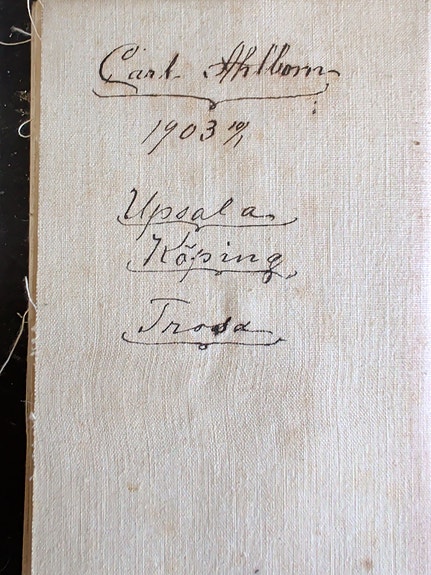 Carl Ahlbom
1903 10/1
Upsala
Köping
Trosa